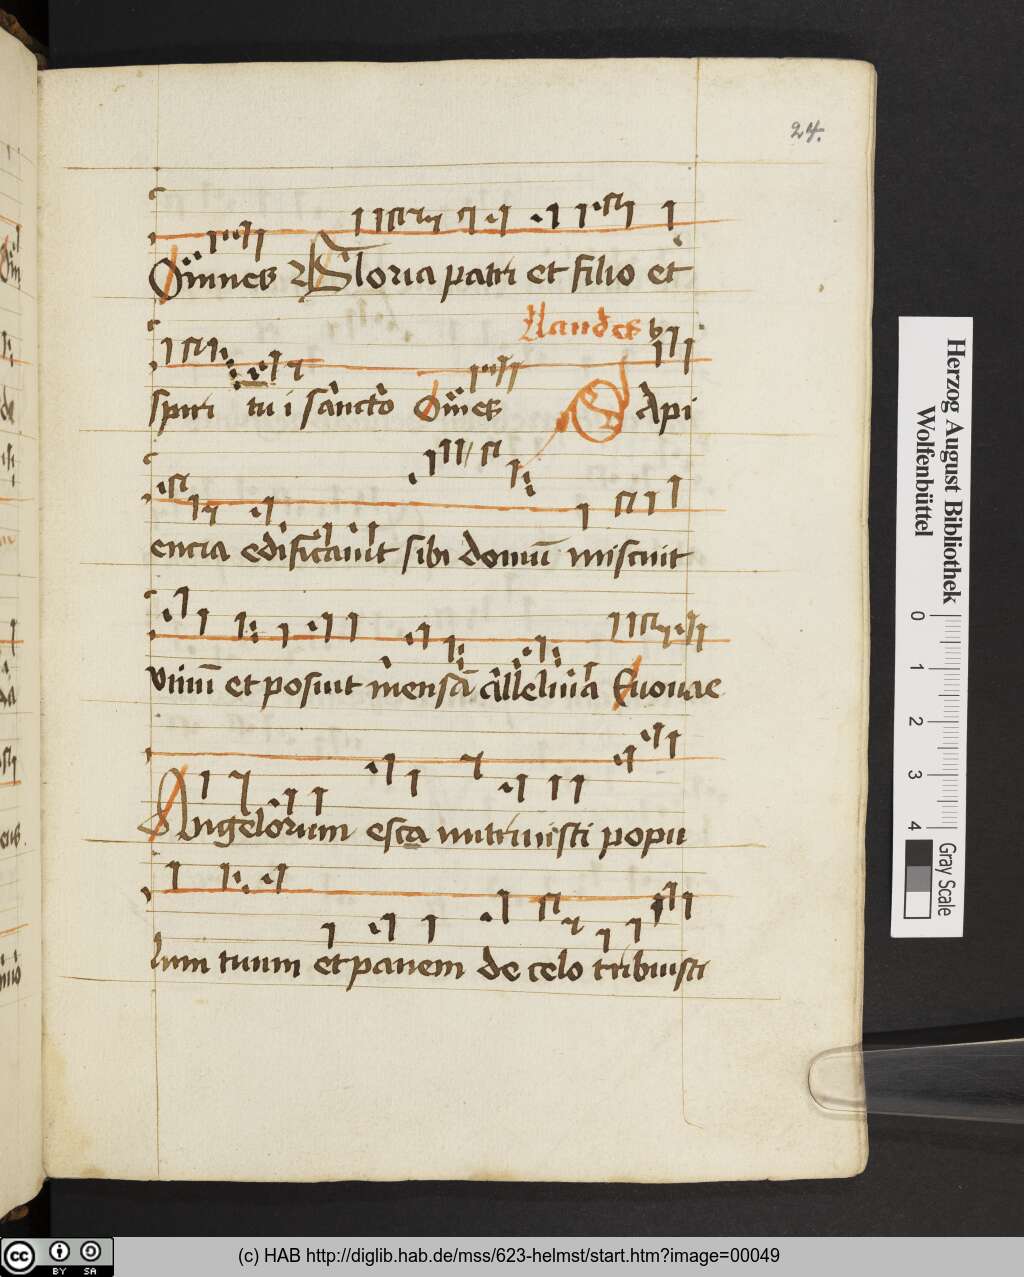 24.
Omnes ℣ Gloria patri et filio et
Laudes
spiri tu i sancto Om̄es Sapi
encia edificauit sibi domū miscuit
vinū et posuit mensā alleluia Euouae
Angelorum esca nutriuisti popu
lum tuum et panem de celo tribuisti
Herzog August Bibliothek
Wolfenbüttel
0 1 2 3 4
Gray Scale
cc BY SA
(c) HAB http://diglib.hab.de/mss/623-helmst/start.htm?image=00049